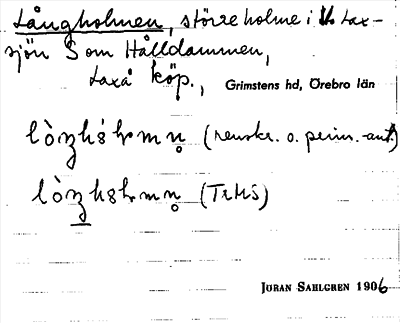 Långholmen, större holme i V. Lax-
sjön S om Hålldammen,
Laxå köp., Grimstens hd, Örebro län
(renskr. o. prim.-ant.)
(TrHS)
JÖRAN SAHLGREN 1906